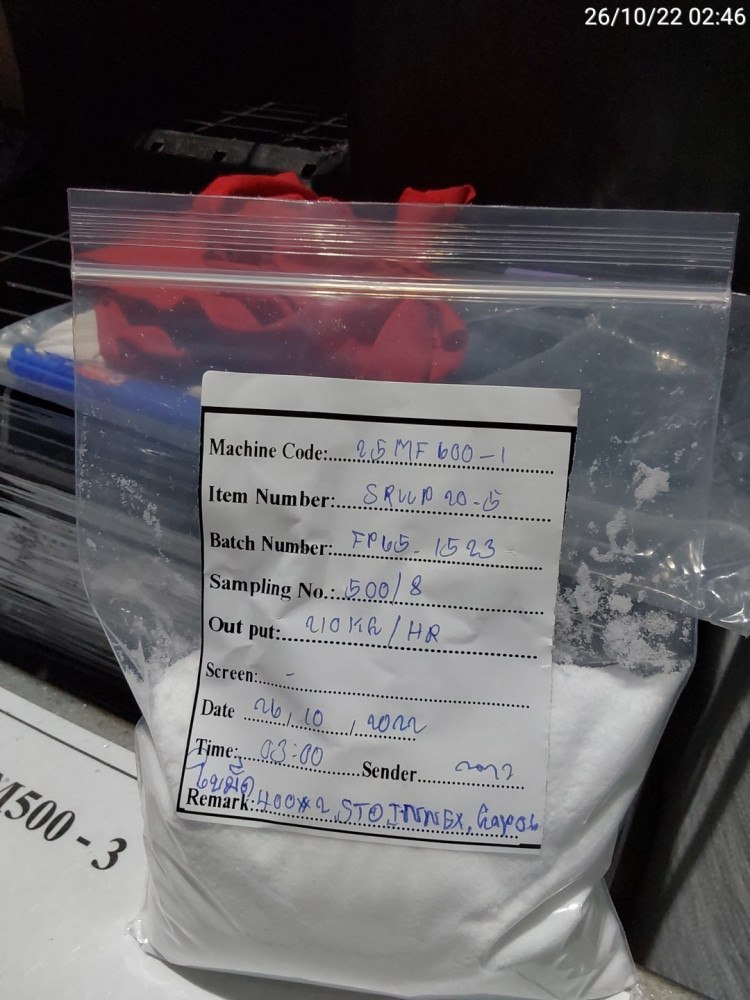 26/10/22 02:46
Machine Code: 25MF 600-1
Item Number: SRWP 20-5
Batch Number: FP65-1523
Sampling No.: 500/8
Out put: 210KG/HR
Screen: -
Date 26/10/2022
Time: 03:00 Sender
ใบมีด
Remark: 400#2, STD INNEX, Gap 0.6
M500 - 3